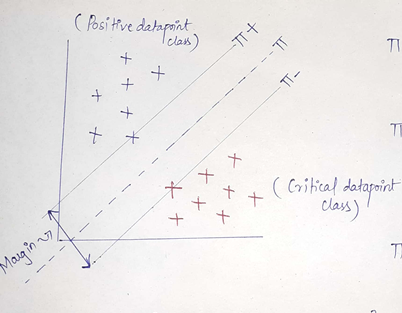 (Positive datapoint
class)
π+
π
π-
(Critical datapoint
class)
Margin
π
π
π